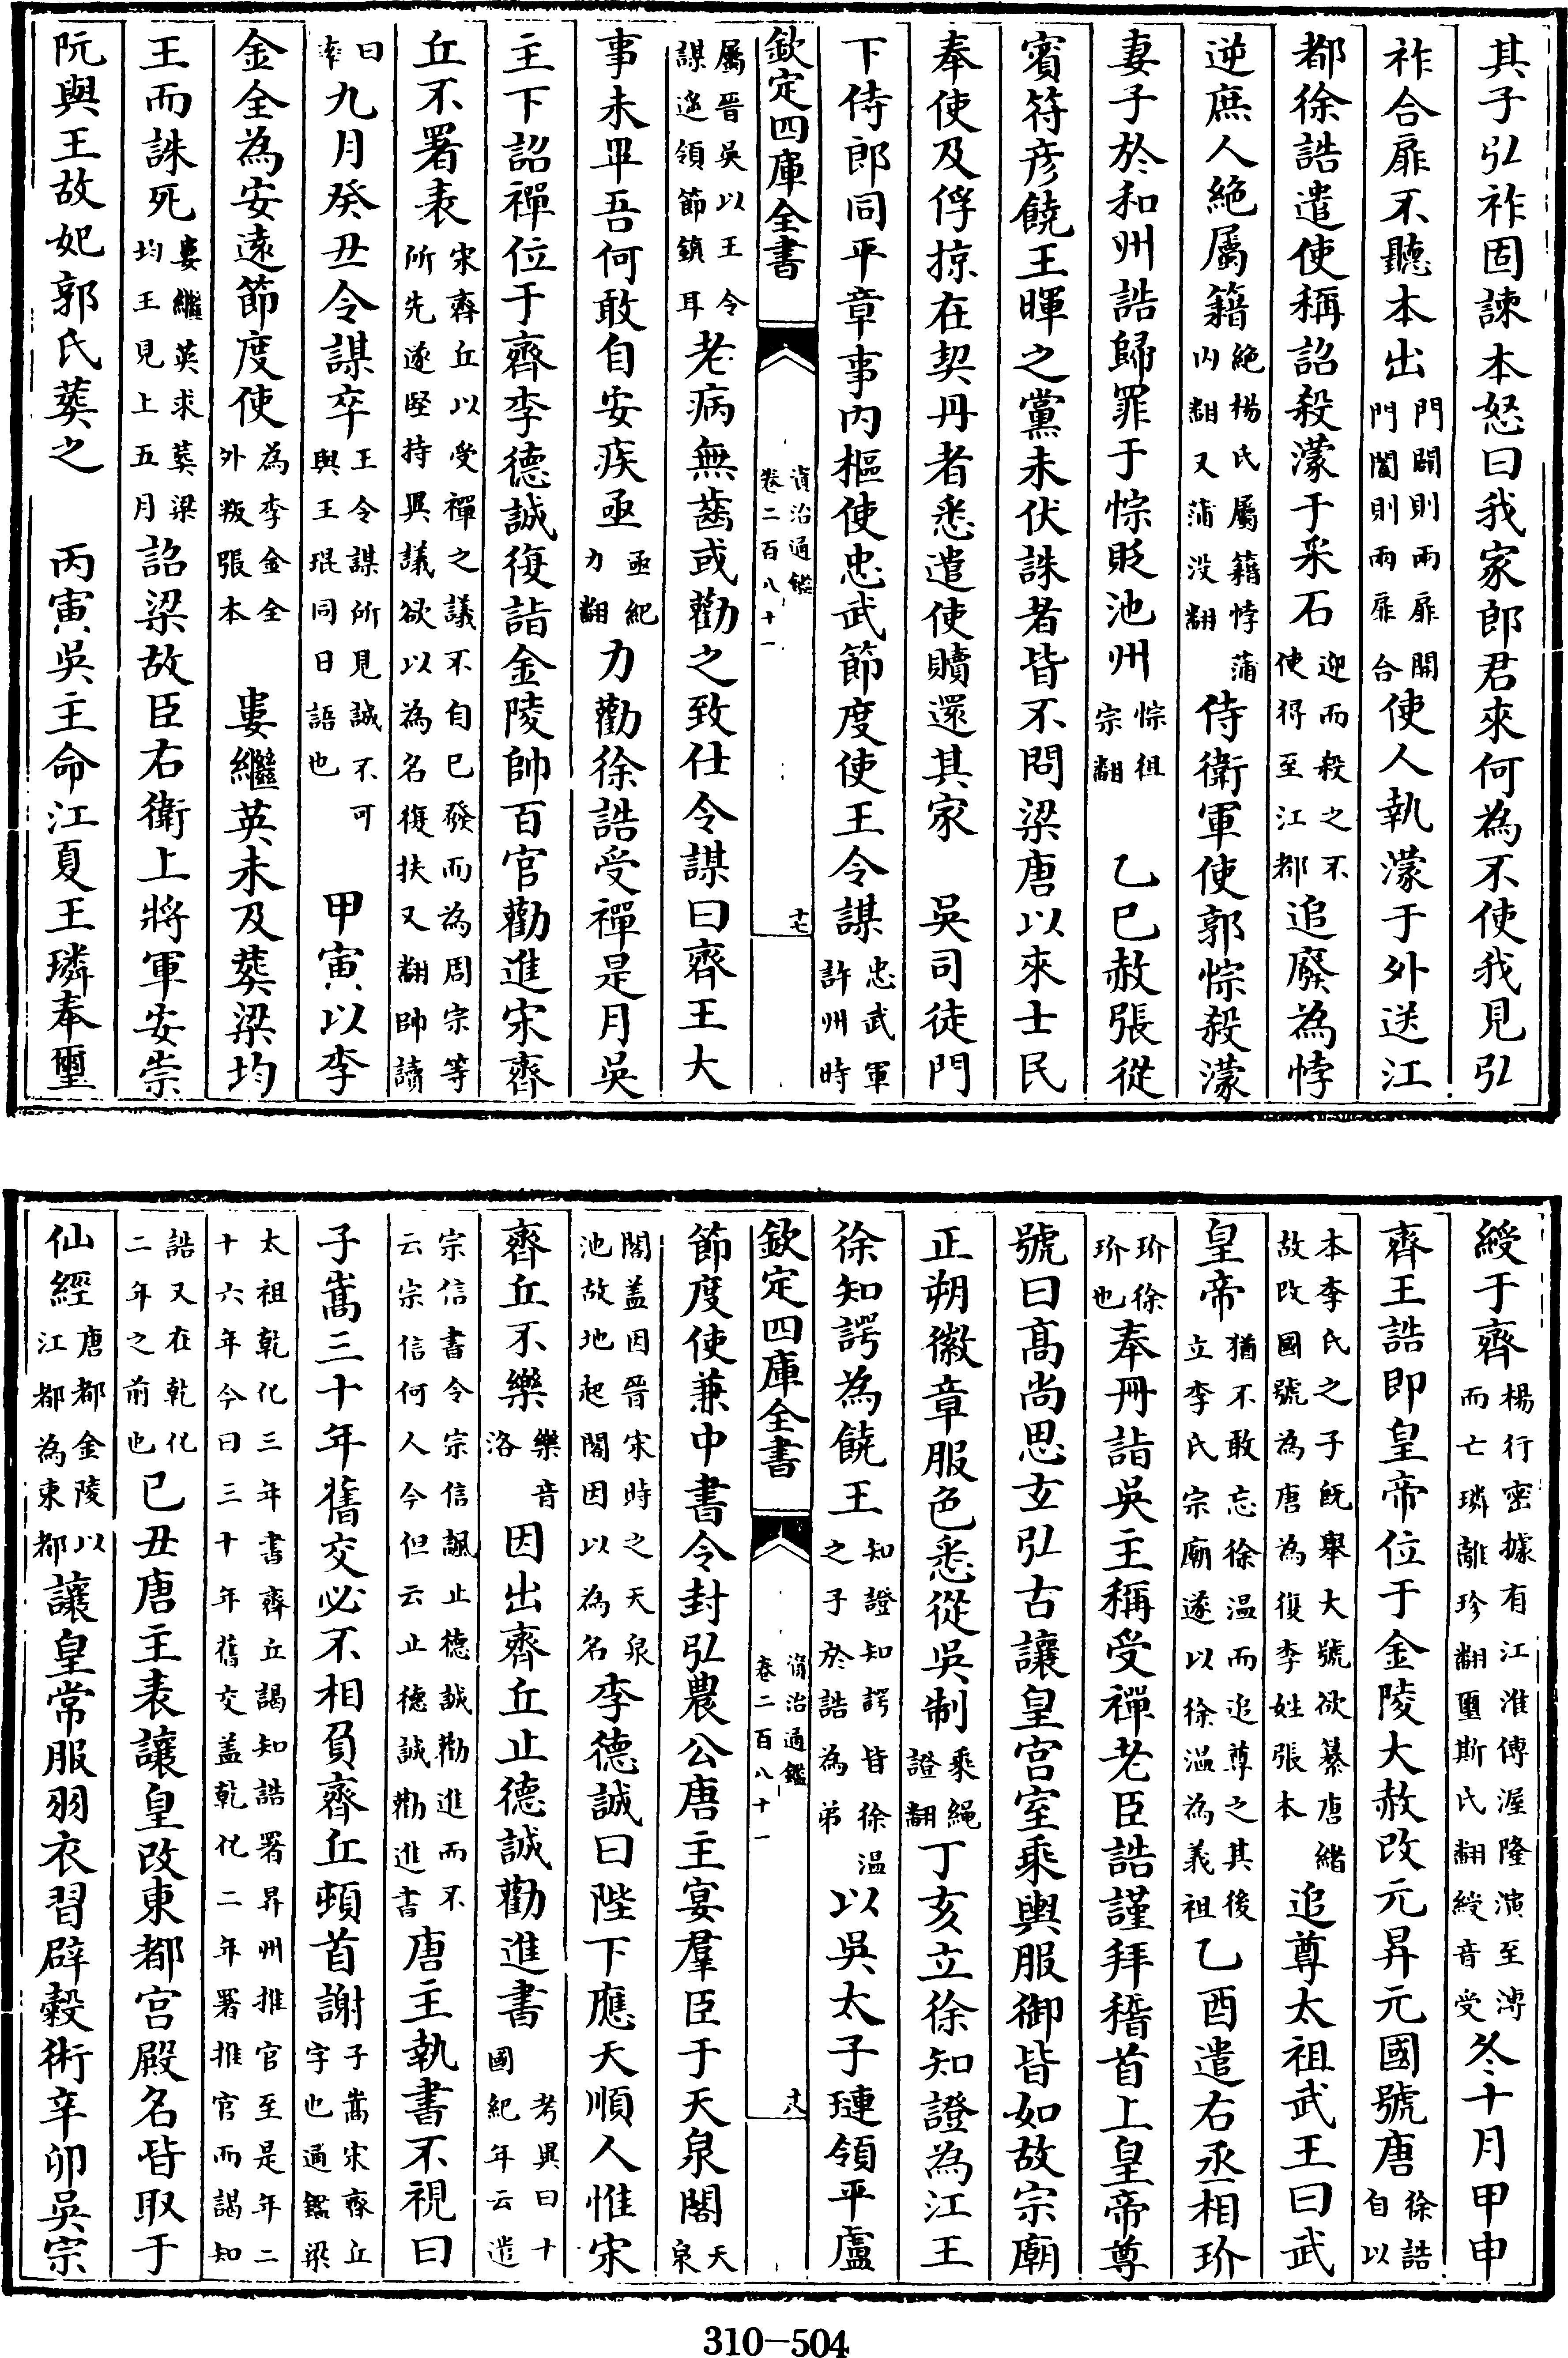 其子弘祚固諫本怒曰我家郎君來何為不使我見弘
祚合扉不聽本出門闢則兩扉開門闔則兩扉合使人執濛于外送江
都徐誥遣使稱詔殺濛于采石迎而殺之不使得至江都追廢為悖
逆庶人絕屬籍絕楊氏屬籍悖蒲内翻又蒲沒翻侍衛軍使郭悰殺濛
妻子於和州誥歸罪于悰貶池州悰徂宗翻 乙巳赦張從
賓符彦饒王暉之黨未伏誅者皆不問梁唐以來士民
奉使及俘掠在契丹者悉遣使贖還其家 吳司徒門
下侍郎同平章事内樞使忠武節度使王令謀忠武軍許州時
欽定四庫全書 資治通鑑 卷二百八十一 十七
屬晉吳以王令謀遥領節鎮耳老病無齒或勸之致仕令謀曰齊王大
事未畢吾何敢自安疾亟亟紀力翻力勸徐誥受禪是月吳
主下詔禪位于齊李德誠復詣金陵帥百官勸進宋齊
丘不署表宋齊丘以受禪之議不自已發而為周宗等所先遂堅持異議欲以為名復扶又翻帥讀
曰率九月癸丑令謀卒王令謀所見誠不可與王琨同日語也 甲寅以李
金全為安遠節度使為李金全外叛張本 婁繼英未及葬梁均
王而誅死婁繼英求葬梁均王見上五月詔梁故臣右衛上將軍安崇
阮與王故妃郭氏葬之 丙寅吳主命江夏王璘奉璽
綬于齊楊行密據有江淮傳渥隆演至溥而亡璘離珍翻璽斯氏翻綬音受冬十月甲申
齊王誥即皇帝位于金陵大赦改元昇元國號唐徐誥自以
本李氏之子既舉大號欲纂唐緒故改國號為唐為復李姓張本追尊太祖武王曰武
皇帝猶不敢忘徐温而追尊之其後立李氏宗廟遂以徐温為義祖乙酉遣右丞相玠
玠徐玠也奉冊詣吳主稱受禪老臣誥謹拜稽首上皇帝尊
號曰高尚思玄弘古讓皇宫室乘輿服御皆如故宗廟
正朔徽章服色悉從吳制乘繩證翻丁亥立徐知證為江王
徐知諤為饒王知證知諤皆徐温之子於誥為弟以吳太子璉領平盧
欽定四庫全書 資治通鑑 卷二百八十一 十八
節度使兼中書令封弘農公唐主宴羣臣于天泉閣天泉
閣盖因晉宋時之天泉池故地起閣因以為名李德誠曰陛下應天順人惟宋
齊丘不樂樂音洛因出齊丘止德誠勸進書考異曰十國紀年云遣
宗信書令宗信諷止德誠勸進而不云宗信何人今但云止德誠勸進書唐主執書不視曰
子嵩三十年舊交必不相負齊丘頓首謝子嵩宋齊丘字也通鑑梁
太祖乾化三年書齊丘謁知誥署昇州推官至是年二十六年今曰三十年舊交盖乾化二年署推官而謁知
誥又在乾化二年之前也己丑唐主表讓皇改東都宫殿名皆取于
仙經唐都金陵以江都為東都讓皇常服羽衣習辟穀術辛卯吳宗
310-504